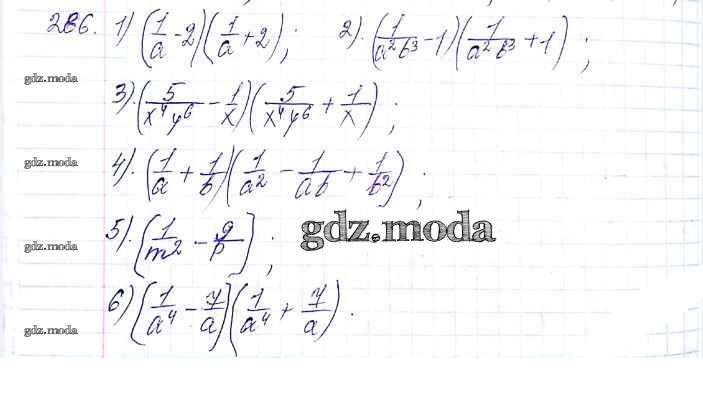 286. 1) (1/a - 2)(1/a + 2); 2). (1/a²b³ - 1)(1/a²b³ + 1);
gdz.moda
3). (5/x⁴y⁶ - 1/x)(5/x⁴y⁶ + 1/x);
gdz.moda
4). (1/a + 1/b)(1/a² - 1/ab + 1/b²);
5). [1/m² - 9/p]; gdz.moda
gdz.moda
6) (1/a⁴ - 7/a)(1/a⁴ + 7/a).
gdz.moda